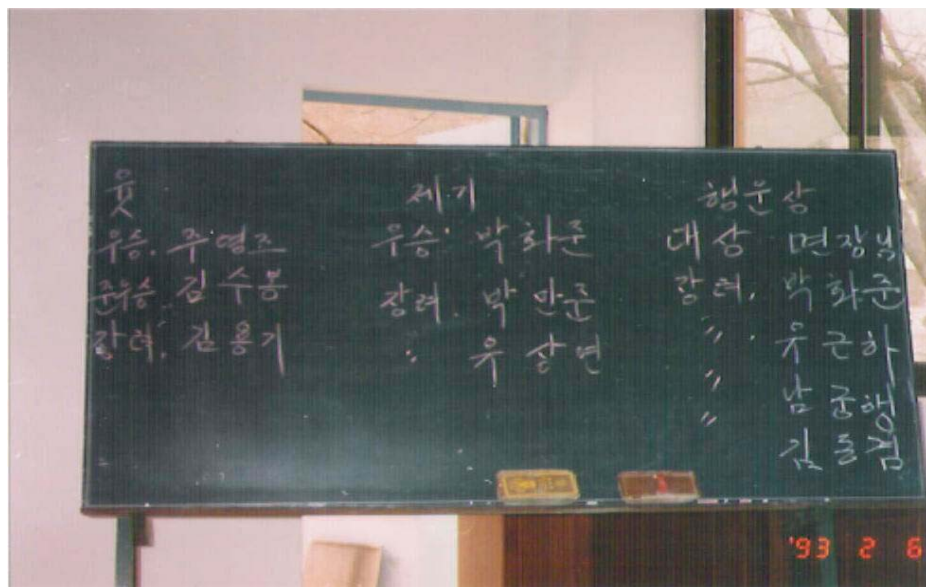 윷
우승. 주영조
준우승 김수봉
장려. 김용기
제기
우승. 박화준
장려. 박만준
〃 유상연
행운상
대상 면장님
장려. 박화준
〃. 유근하
〃 남궁행
〃 김동겸
'93 2 6